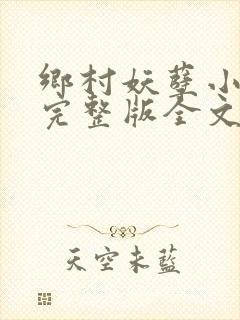 鄉村妖孽小
完整版全文
天空未藍